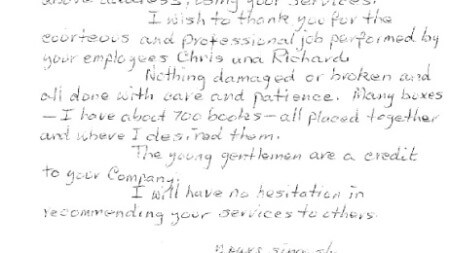 above address, using your services.
I wish to thank you for the
courteous and professional job performed by
your employees Chris una Richard.
Nothing damaged or broken and
all done with care and patience. Many boxes
- I have about 700 books - all placed together
and where I desired them.
The young gentlemen are a credit
to your Company.
I will have no hesitation in
recommending your services to others.
Yours